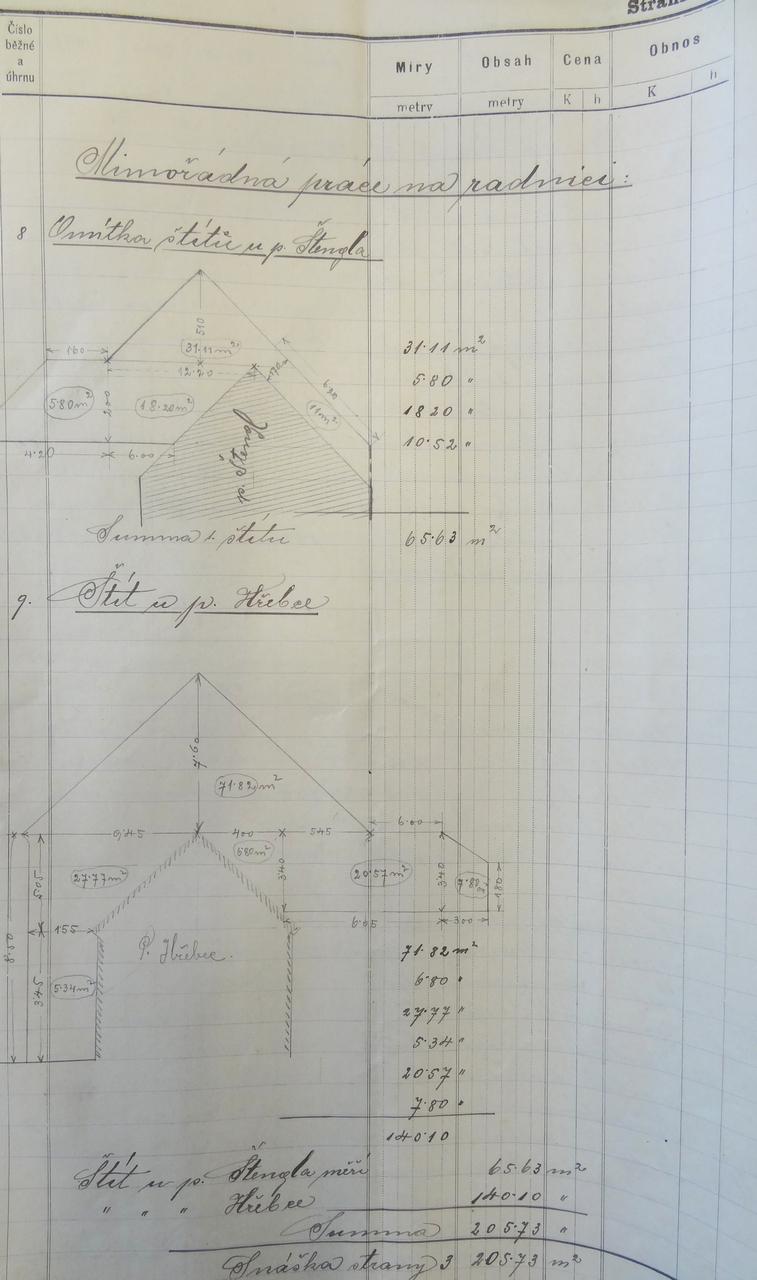 Číslo běžné a úhrnu
Míry
metry
Obsah
metry
Cena
K h
Obnos
K h
Mimořádná práce na radnici:
8 Omítka štítu u p. Štengla
510
160
31·11 m²
12·20
580 m²
200
18·20 m²
620
11 m²
p. Štengl
4·20
6·00
31·11 m²
5·80 "
18 20 "
10·52 "
Summa 1. štítu 65·63 m²
9. Štít u p. Hřebce
7·60
71·82 m²
9·45
400
545
6·00
680 m²
27·77 m²
505
340
20·57 m²
340
7·80
180
6·05
300
155
P. Hřebec.
8·50
5·34 m²
345
71·82 m²
6·80 "
27·77 "
5·34 "
20·57 "
7·80 "
140·10
Štít u p. Štengla měří 65·63 m²
" " " Hřebce 140·10 "
Summa 205·73 "
Snáška strany 3 205·73 m²